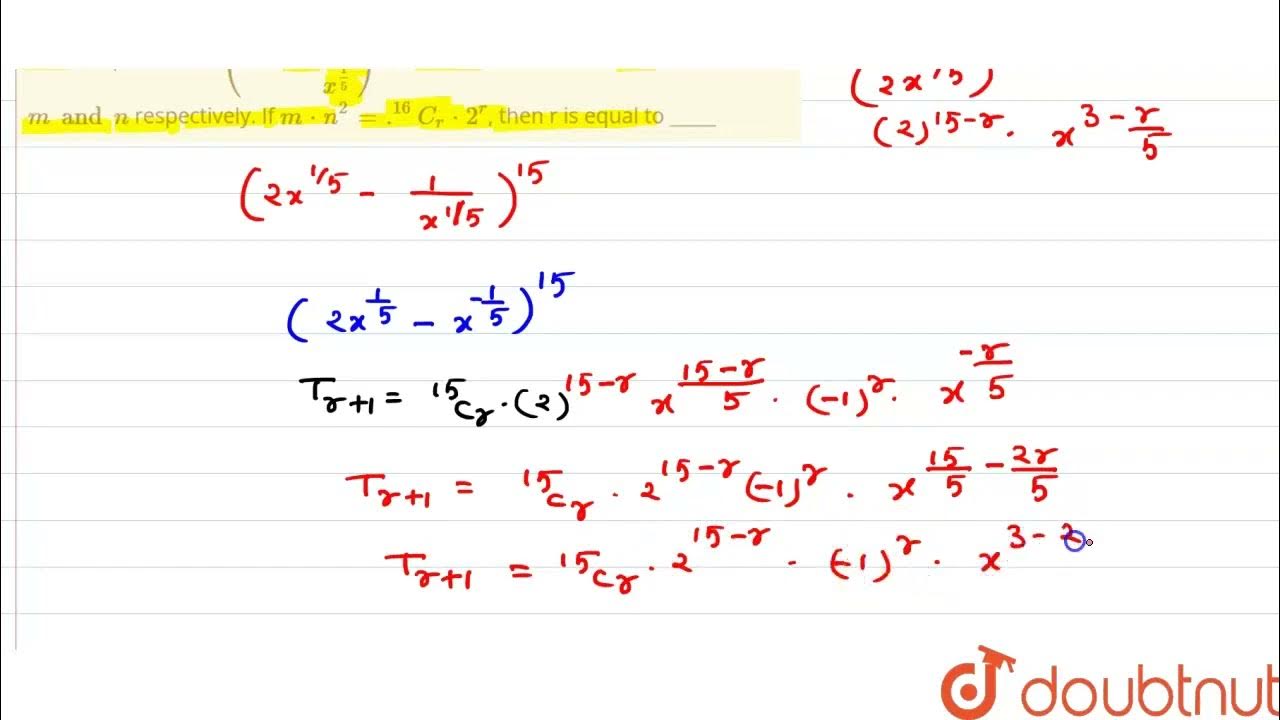 x^(1/5)
m and n respectively. If m · n² = .¹⁶C_r · 2^r, then r is equal to ____
(2x^1/5)
(2)^15-r · x^3-r/5
(2x^1/5 - 1/x^1/5)^15
(2x^1/5 - x^-1/5)^15
T_r+1 = ¹⁵C_r · (2)^15-r x^15-r/5 · (-1)^r · x^-r/5
T_r+1 = ¹⁵C_r · 2^15-r (-1)^r · x^15/5 - 2r/5
T_r+1 = ¹⁵C_r · 2^15-r · (-1)^r · x^3-2
doubtnut